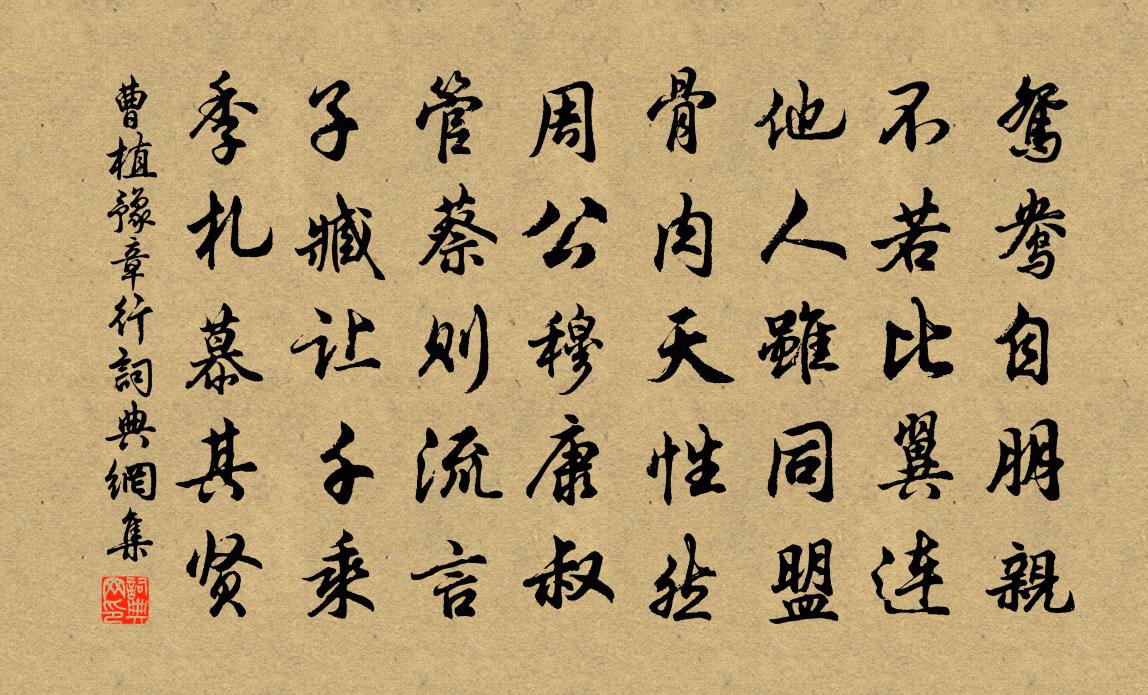 鴛鴦自朋親
不若比翼連
他人雖同盟
骨肉天性然
周公穆康叔
管蔡则流言
子臧让千乘
季札慕其贤
曹植豫章行詞典網集
詞典网印